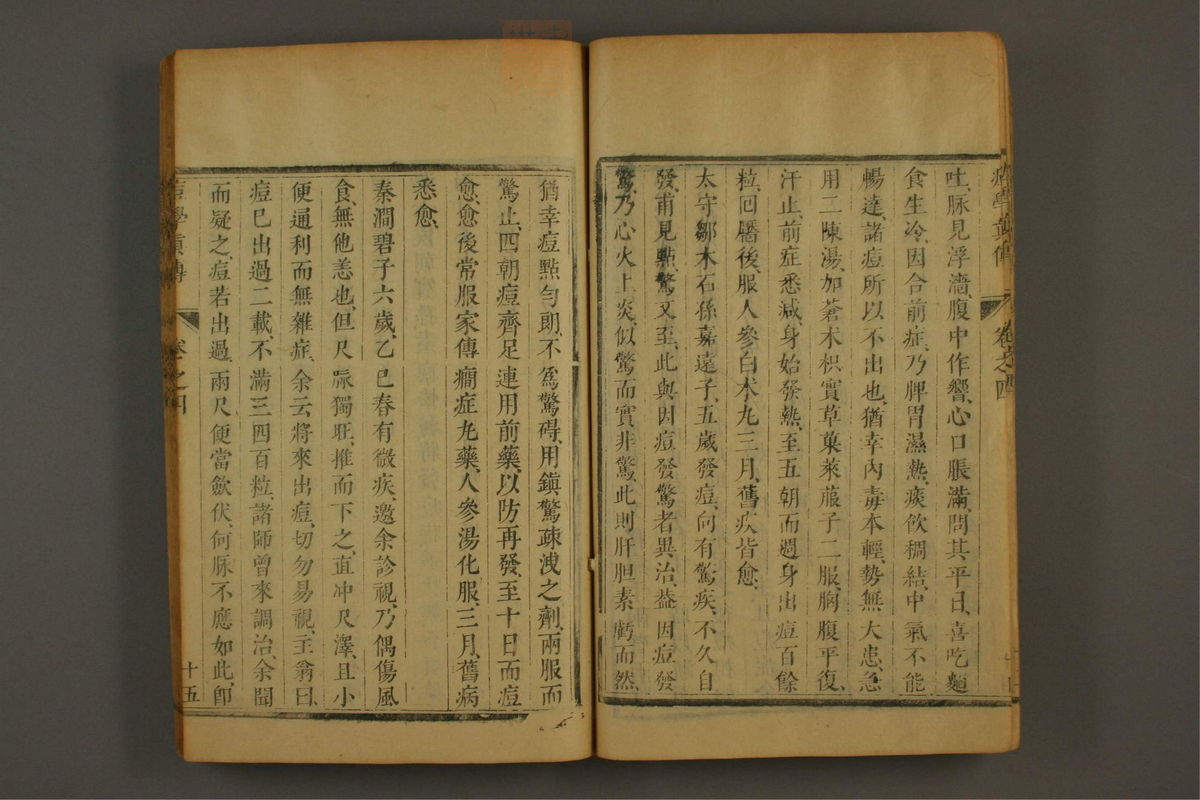 吐、脉見浮濇、腹中作響、心口脹滿、問其平日、喜吃麵
食生冷、因合前症、乃脾胃濕熱、痰飲稠結、中氣不能
暢達、諸痘所以不出也、猶幸內毒本輕、勢無大患、急
用二陳湯、加蒼木枳實草菓萊菔子二服、胸腹平復、
汗止、前症悉減、身始發熱、至五朝而週身出痘百餘
粒、回靨後、服人參白朮丸三月、舊疾皆愈、
太守鄒木石孫嘉遠子、五歲發痘、向有驚疾、不久自
發、甫見點、驚又至、此與因痘發驚者異治、葢因痘發
驚、乃心火上炎、似驚而實非驚、此則肝胆素虧而然、
卷之四
猶幸痘點勻朗、不爲驚碍、用鎭驚疎洩之劑、兩服而
驚止、四朝痘齊足、連用前藥、以防再發、至十日而痘
愈、愈後常服家傳癇症丸藥、人參湯化服、三月、舊病
悉愈、
秦澗碧子六歲、乙巳春有微疾、邀余診視、乃偶傷風
食、無他恙也、但尺脉獨旺、推而下之、直冲尺澤、且小
便通利而無雜症、余云將來出痘、切勿易視、主翁曰、
痘已出過二載、不滿三四百粒、諸師曾來調治、余聞
而疑之、痘若出過、兩尺便當歛伏、何脉不應如此、卽
痘學眞傳
卷之四
十五